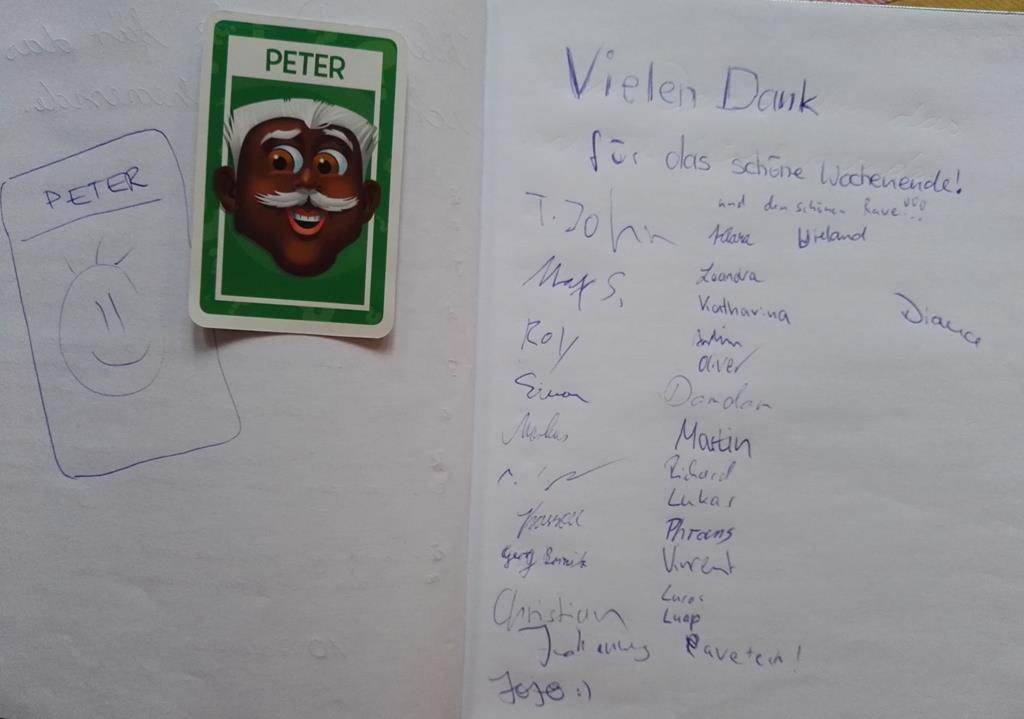 PETER
PETER
Vielen Dank
für das schöne Wochenende!
und den schönen Rave!!!
T. John
Klara Wieland
Max S.
Leandra
Katharina
Dianca
Roy
Oliver
Simon
Dandan
Markus
Martin
Richard
Lukas
Phrans
Georg
Vincent
Lucas
Christian
Luap
Johannes
Ravetech!
JoJo :)